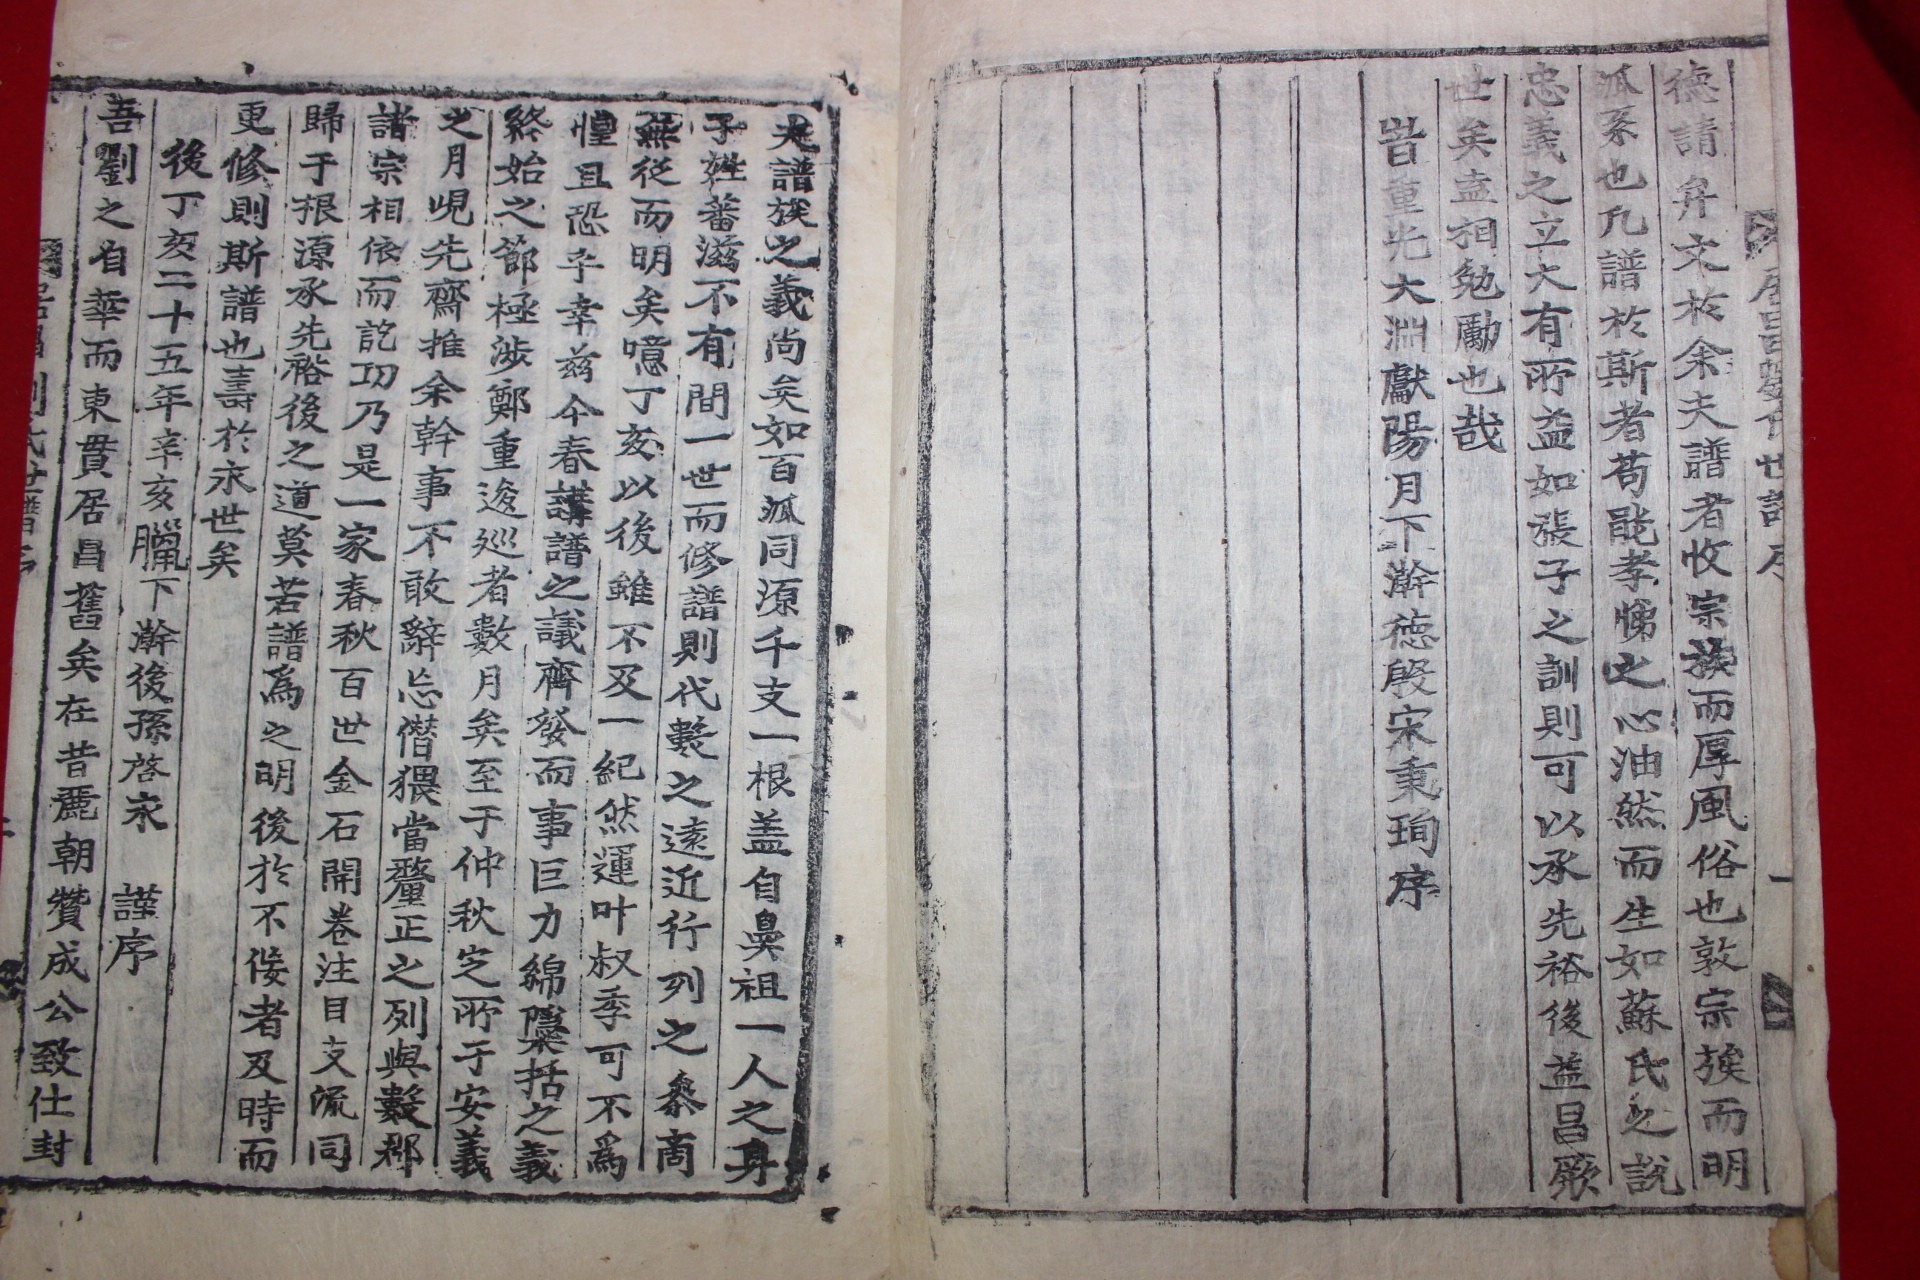 德請弁文於余夫譜者收宗族而厚風俗也敦宗族而明
派系也凡譜於斯者苟能孝悌之心油然而生如蘇氏之說
忠義之立大有所益如張子之訓則可以承先裕後益昌厥
世矣盍相勉勵也哉
昔重光大淵獻陽月下澣德殷宋秉珣序
夫譜族之義尚矣如百派同源千支一根盖自鼻祖一人之身
子姓蕃滋不有間一世而修譜則代數之遠近行列之叅商
無從而明矣噫丁亥以後雖不及一紀然運叶叔季可不爲
惶且恐乎幸玆今春講譜之議齊發而事巨力綿隱括之義
終始之節極涉鄭重逡巡者數月矣至于仲秋定所于安義
之月峴先齋推余幹事不敢辭忘僭猥當釐正之列與數郡
諸宗相依而訖功乃是一家春秋百世金石開卷注目支流同
歸于根源承先裕後之道莫若譜爲之明後於不佞者及時而
更修則斯譜也壽於永世矣
後丁亥二十五年辛亥臘下澣後孫啓永 謹序
吾劉之自華而東貫居昌舊矣在昔麗朝贊成公致仕封